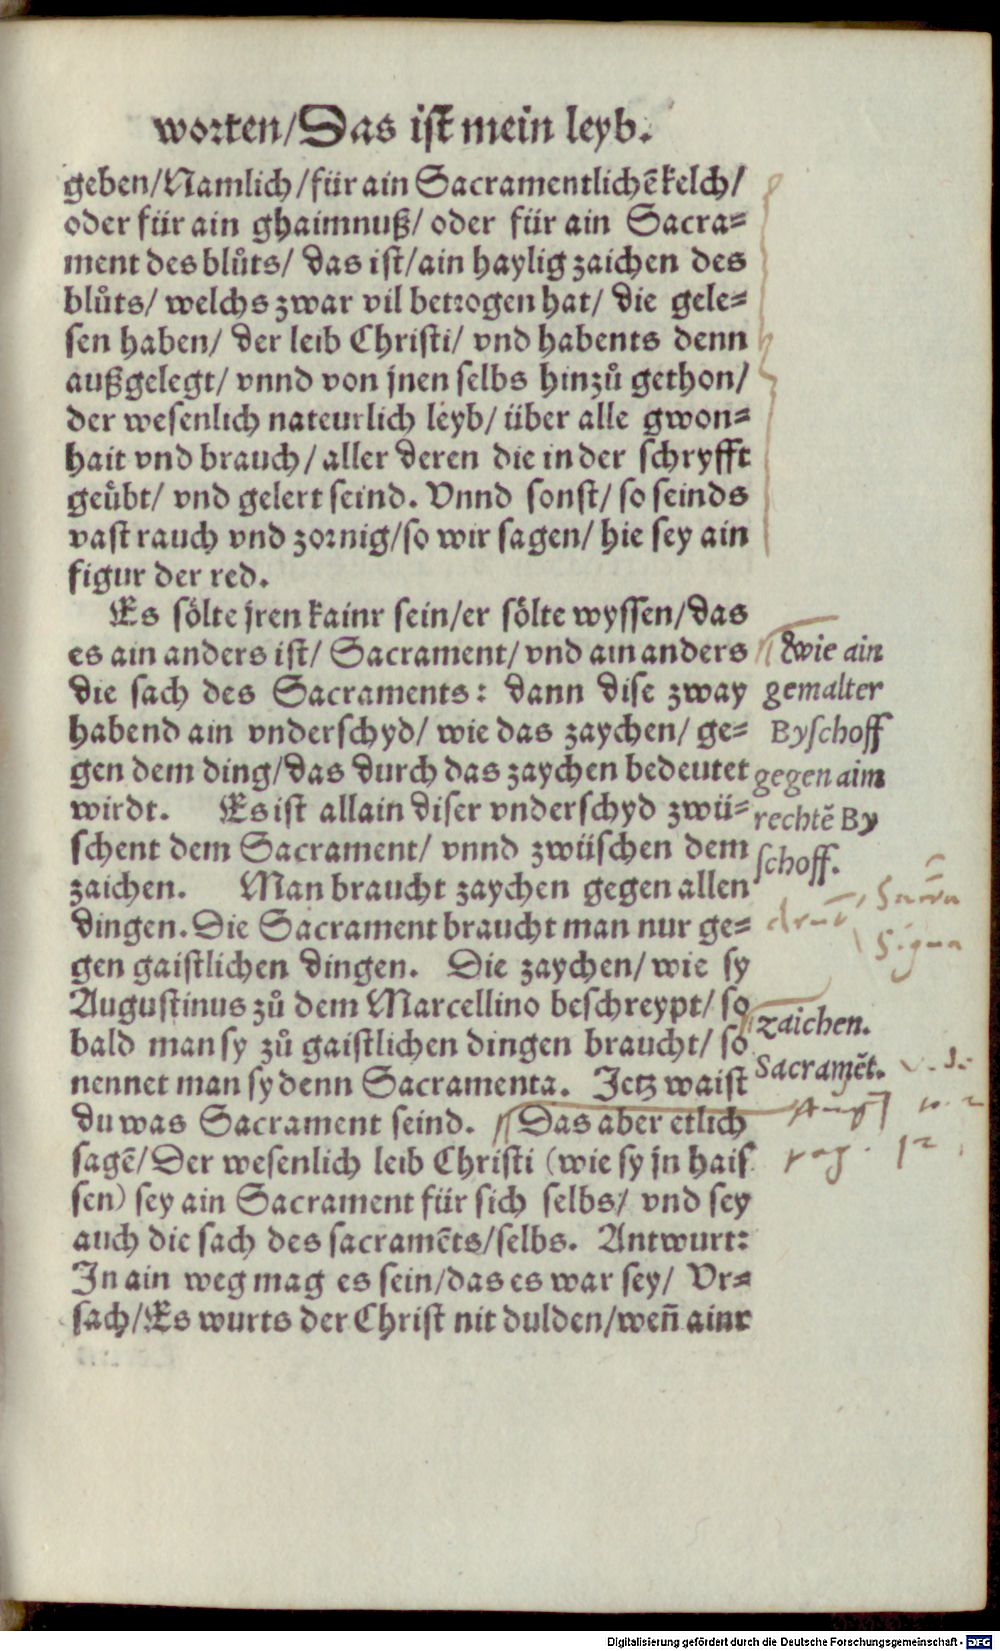 worten/Das ist mein leyb.
geben/Namlich/für ain Sacramentlichẽ kelch/
oder für ain ghaimnuß/ oder für ain Sacra=
ment des blůts/ das ist/ain haylig zaichen des
blůts/ welchs zwar vil betrogen hat/ die gele=
sen haben/ der leib Christi/ vnd habents denn
außgelegt/ vnnd von jnen selbs hinzů gethon/
der wesenlich nateurlich leyb/ über alle gwon=
hait vnd brauch/ aller deren die in der schryfft
geůbt/ vnd gelert seind. Vnnd sonst/ so seinds
vast rauch vnd zornig/so wir sagen/ hie sey ain
figur der red.
Es sölte jren kainr sein/er sölte wyssen/das
es ain anders ist/ Sacrament/ vnd ain anders
die sach des Sacraments: dann dise zway
habend ain vnderschyd/ wie das zaychen/ ge=
gen dem ding/das durch das zaychen bedeutet
wirdt. Es ist allain diser vnderschyd zwü=
schent dem Sacrament/ vnnd zwüschen dem
zaichen. Man braucht zaychen gegen allen
dingen. Die Sacrament braucht man nur ge=
gen gaistlichen dingen. Die zaychen/ wie sy
Augustinus zů dem Marcellino beschreypt/ so
bald man sy zů gaistlichen dingen braucht/ so
nennet man sy denn Sacramenta. Jetz waist
du was Sacrament seind. Das aber etlich
sagẽ/Der wesenlich leib Christi (wie sy jn hais
sen) sey ain Sacrament für sich selbs/ vnd sey
auch die sach des sacramẽts/selbs. Antwurt:
In ain weg mag es sein/das es war sey/ Vr=
sach/Es wurts der Christ nit dulden/weñ ainr
wie ain
gemalter
Byschoff
gegen aim
rechtẽ By
schoff.
Signa
zaichen.
Sacramẽt.
pag. 12
Digitalisierung gefördert durch die Deutsche Forschungsgemeinschaft - DFG